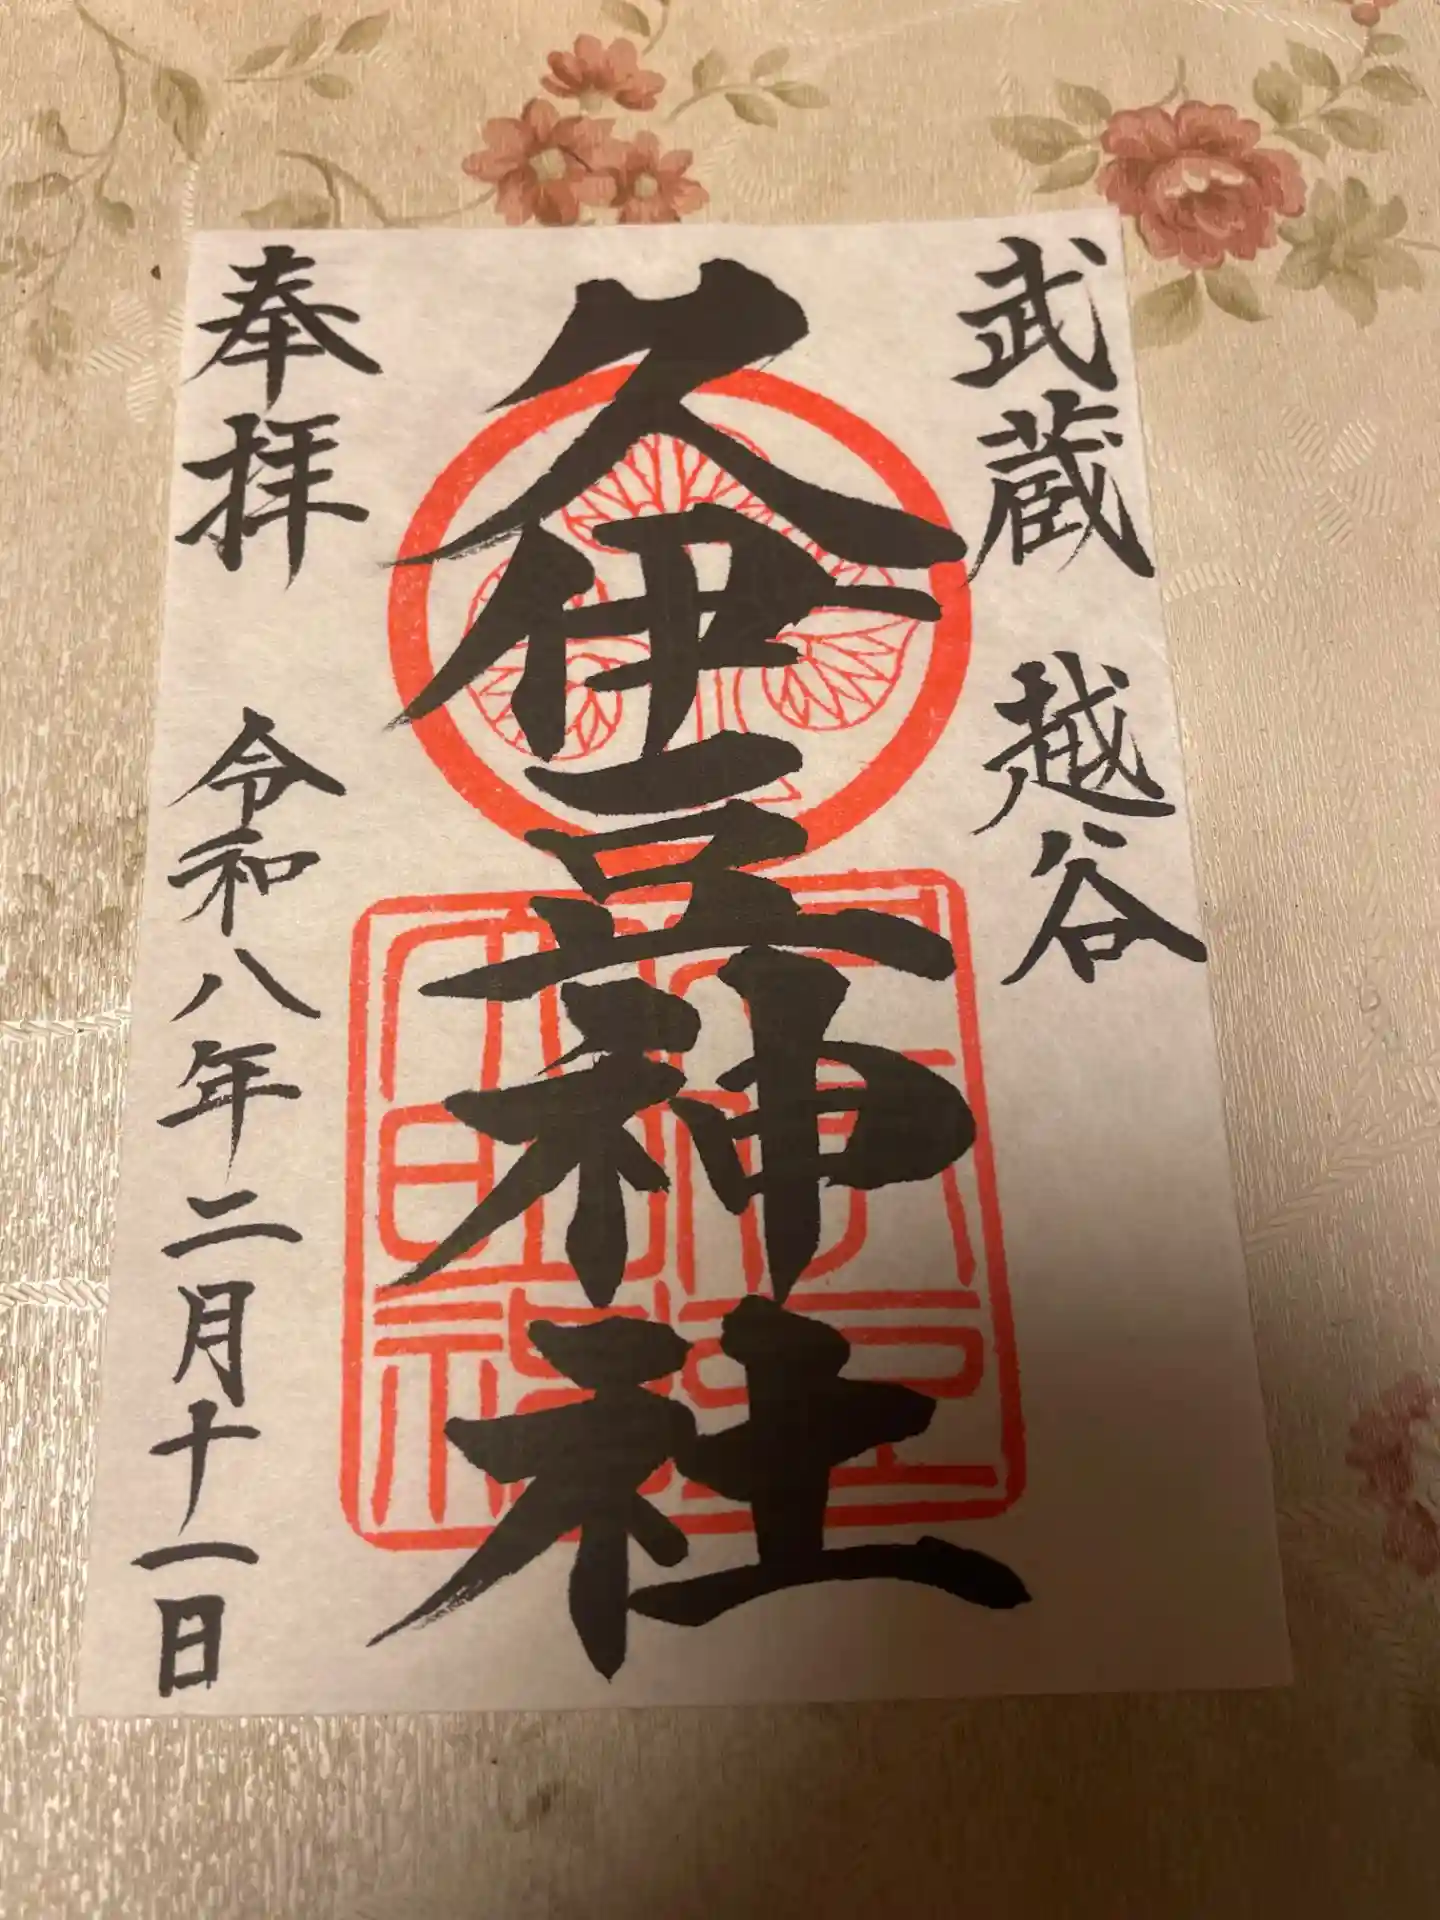 武蔵 越谷
久伊豆神社
奉拝 令和八年二月十一日